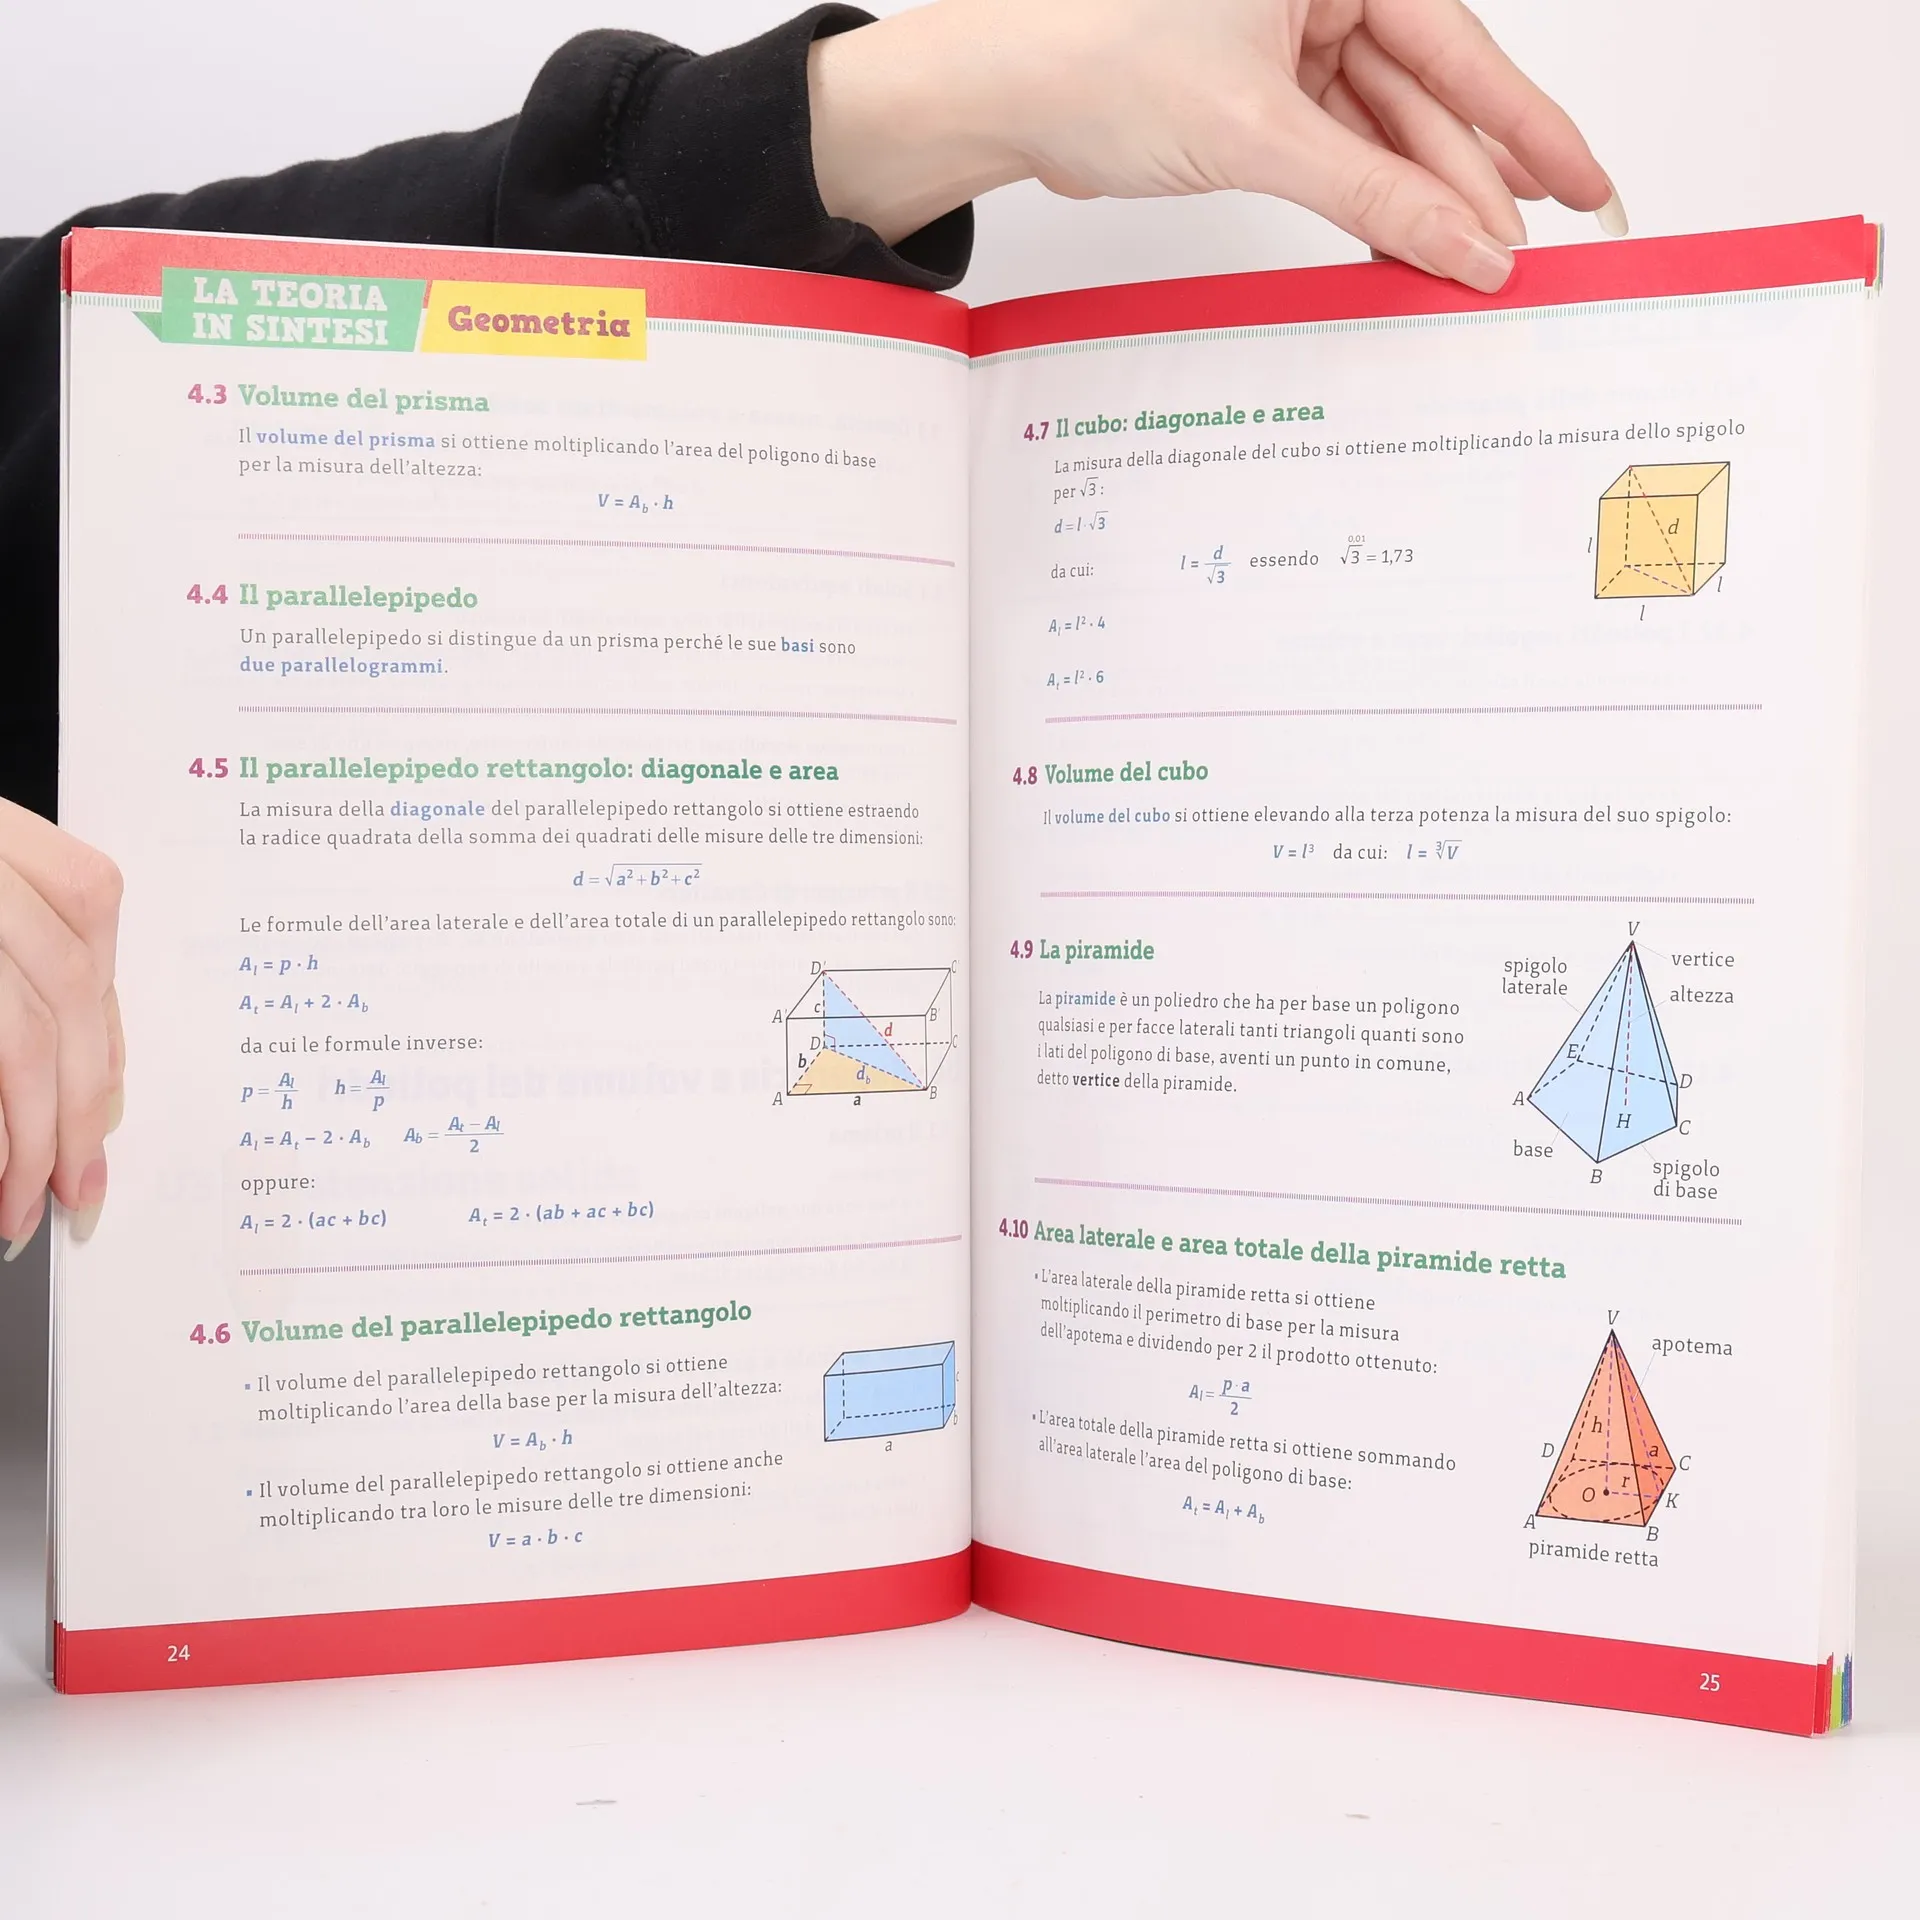 LA TEORIA
IN SINTESI
Geometria
4.3 Volume del prisma
Il volume del prisma si ottiene moltiplicando l'area del poligono di base
per la misura dell'altezza:
V = A_b · h
4.4 Il parallelepipedo
Un parallelepipedo si distingue da un prisma perché le sue basi sono
due parallelogrammi.
4.5 Il parallelepipedo rettangolo: diagonale e area
La misura della diagonale del parallelepipedo rettangolo si ottiene estraendo
la radice quadrata della somma dei quadrati delle misure delle tre dimensioni:
d = √(a² + b² + c²)
Le formule dell'area laterale e dell'area totale di un parallelepipedo rettangolo sono:
A_l = p · h
A_t = A_l + 2 · A_b
da cui le formule inverse:
p = A_l/h h = A_l/p
A_l = A_t − 2 · A_b A_b = (A_t − A_l)/2
oppure:
A_l = 2 · (ac + bc) A_t = 2 · (ab + ac + bc)
D' C'
A' c B'
d
D C
b d_b
A a B
4.6 Volume del parallelepipedo rettangolo
▪ Il volume del parallelepipedo rettangolo si ottiene
moltiplicando l'area della base per la misura dell'altezza:
V = A_b · h
▪ Il volume del parallelepipedo rettangolo si ottiene anche
moltiplicando tra loro le misure delle tre dimensioni:
V = a · b · c
c
b
a
24
4.7 Il cubo: diagonale e area
La misura della diagonale del cubo si ottiene moltiplicando la misura dello spigolo
per √3 :
d = l · √3
da cui: l = d/√3 essendo 0,01 √3 = 1,73
A_l = l² · 4
A_t = l² · 6
d
l
l
l
4.8 Volume del cubo
Il volume del cubo si ottiene elevando alla terza potenza la misura del suo spigolo:
V = l³ da cui: l = ∛V
4.9 La piramide
La piramide è un poliedro che ha per base un poligono
qualsiasi e per facce laterali tanti triangoli quanti sono
i lati del poligono di base, aventi un punto in comune,
detto vertice della piramide.
V
vertice
spigolo
laterale
altezza
E
D
A
H
C
base
B
spigolo
di base
4.10 Area laterale e area totale della piramide retta
▪ L'area laterale della piramide retta si ottiene
moltiplicando il perimetro di base per la misura
dell'apotema e dividendo per 2 il prodotto ottenuto:
A_l = p · a/2
▪ L'area totale della piramide retta si ottiene sommando
all'area laterale l'area del poligono di base:
A_t = A_l + A_b
V
apotema
h
D a C
r
O K
A B
piramide retta
25